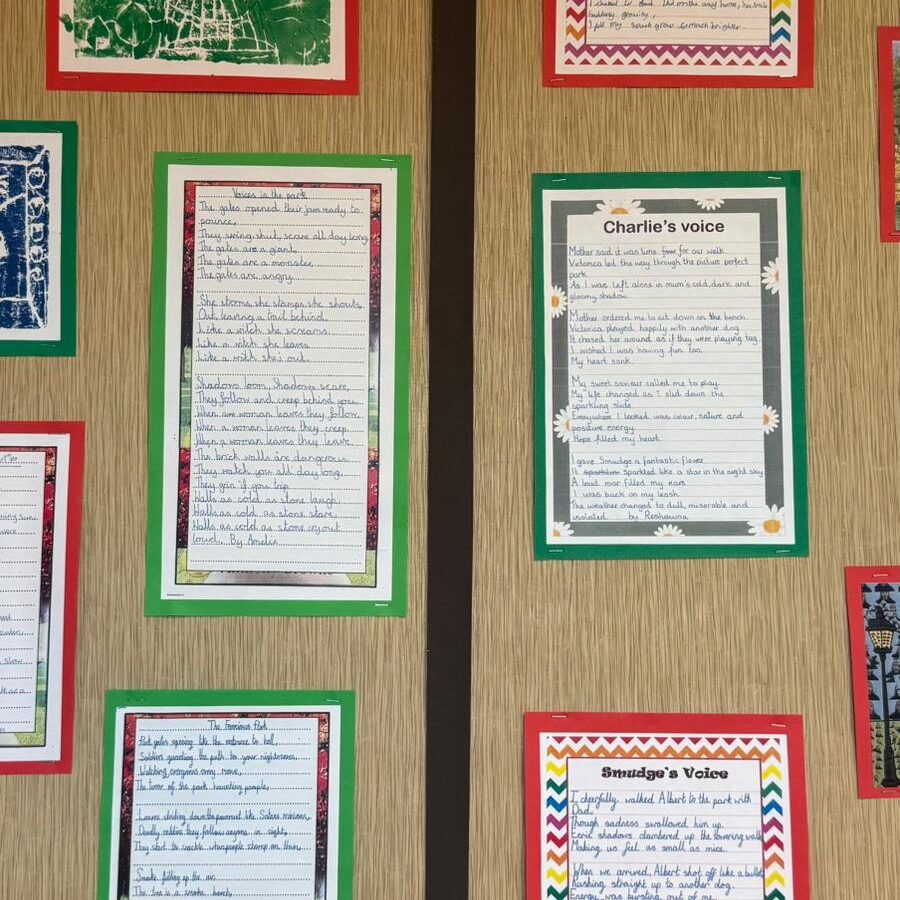 I
suddenly growing,
I felt my heart grow so much brighter.
Voices in the park
The gates opened their jaw ready to
pounce,
They swing shut, scare all day long.
The gates are a giant.
The gates are a monster,
The gates are angry.
She storms she stamps she shouts
Out, leaving a trail behind.
Like a witch she screams
Like a witch she leaves
Like a witch she's out.
Shadows loom, Shadows scare,
They follow and creep behind you.
When a woman leaves they follow.
When a woman leaves they creep.
When a woman leaves they leave.
The brick walls are dangerous.
They watch you all day long.
They grin if you trip.
Walls as cold as stone laugh,
Walls as cold as stone stare,
Walls as cold as stone cry out
loud. By Amelia
Charlie's voice
Mother said it was time for our walk.
Victoria led the way through the picture perfect
park
As I was left alone in mum's cold, dark and
gloomy shadow.
Mother ordered me to sit down on the bench
Victoria played happily with another dog.
It chased her around as if they were playing tag.
I wished I was having fun too.
My heart sank.
My sweet saviour called me to play.
My life changed as I slid down the
sparkling slide.
Everywhere I looked was colour, nature and
positive energy.
Hope filled my heart.
I gave Smudge a fantastic flower
It sparkled like a star in the night sky.
A loud roar filled my ears.
I was back on my leash.
The weather changed to dull, miserable and
isolated. by Reshawna
The Ferocious Park
Park gates opening like the entrance to hell,
Soldiers guarding the path to your nightmares,
Watching everyones every move,
The terror of the park haunting people,
Leaves sliding down the pavement like Satans minions,
Deadly zombies they follow anyone in sight,
They start to crackle when people stomp on them,
Smoke filling up the air,
The tree is a smoke bomb,
Smudge's Voice
I cheerfully walked Albert to the park with
Dad,
Though sadness swallowed him up.
Eerie shadows clambered up the towering walls
Making us feel as small as mice.
When we arrived, Albert shot off like a bullet
Rushing straight up to another dog.
Energy was bursting out of me.